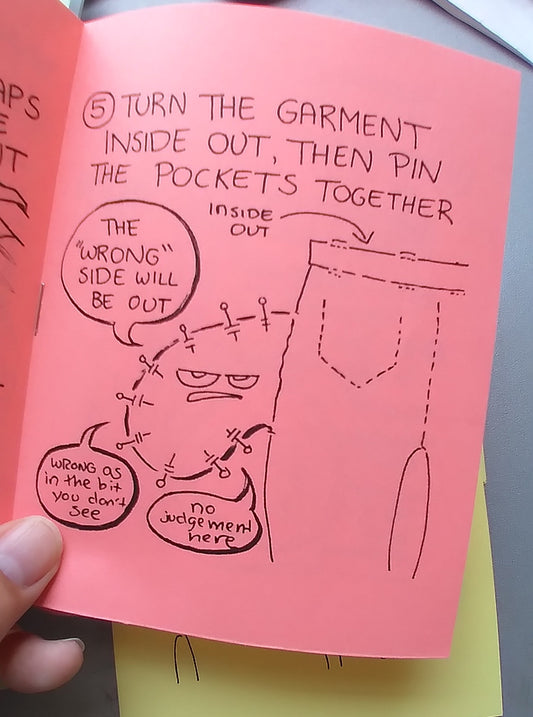 APS
⑤ TURN THE GARMENT
INSIDE OUT, THEN PIN
THE POCKETS TOGETHER
INSIDE
OUT
THE
"WRONG"
SIDE WILL
BE OUT
WRONG as
in the bit
you don't
see
no
judgement
here